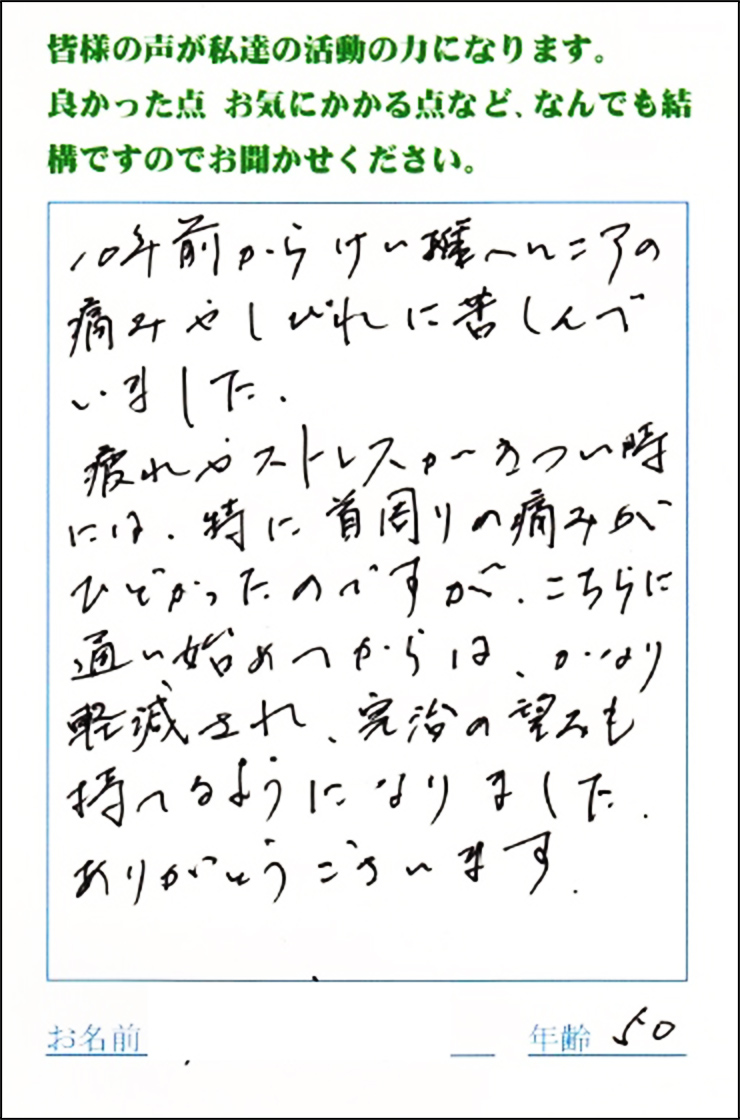 皆様の声が私達の活動の力になります。
良かった点 お気にかかる点など、なんでも結
構ですのでお聞かせください。
10年前からけい椎ヘルニアの
痛みやしびれに苦しんで
いました.
疲れやストレスがきつい時
には、特に首周りの痛みが
ひどかったのですが、こちらに
通い始めてからは、かなり
軽減され、完治の望みも
持てるようになりました.
ありがとうございます.
お名前
年齢 50